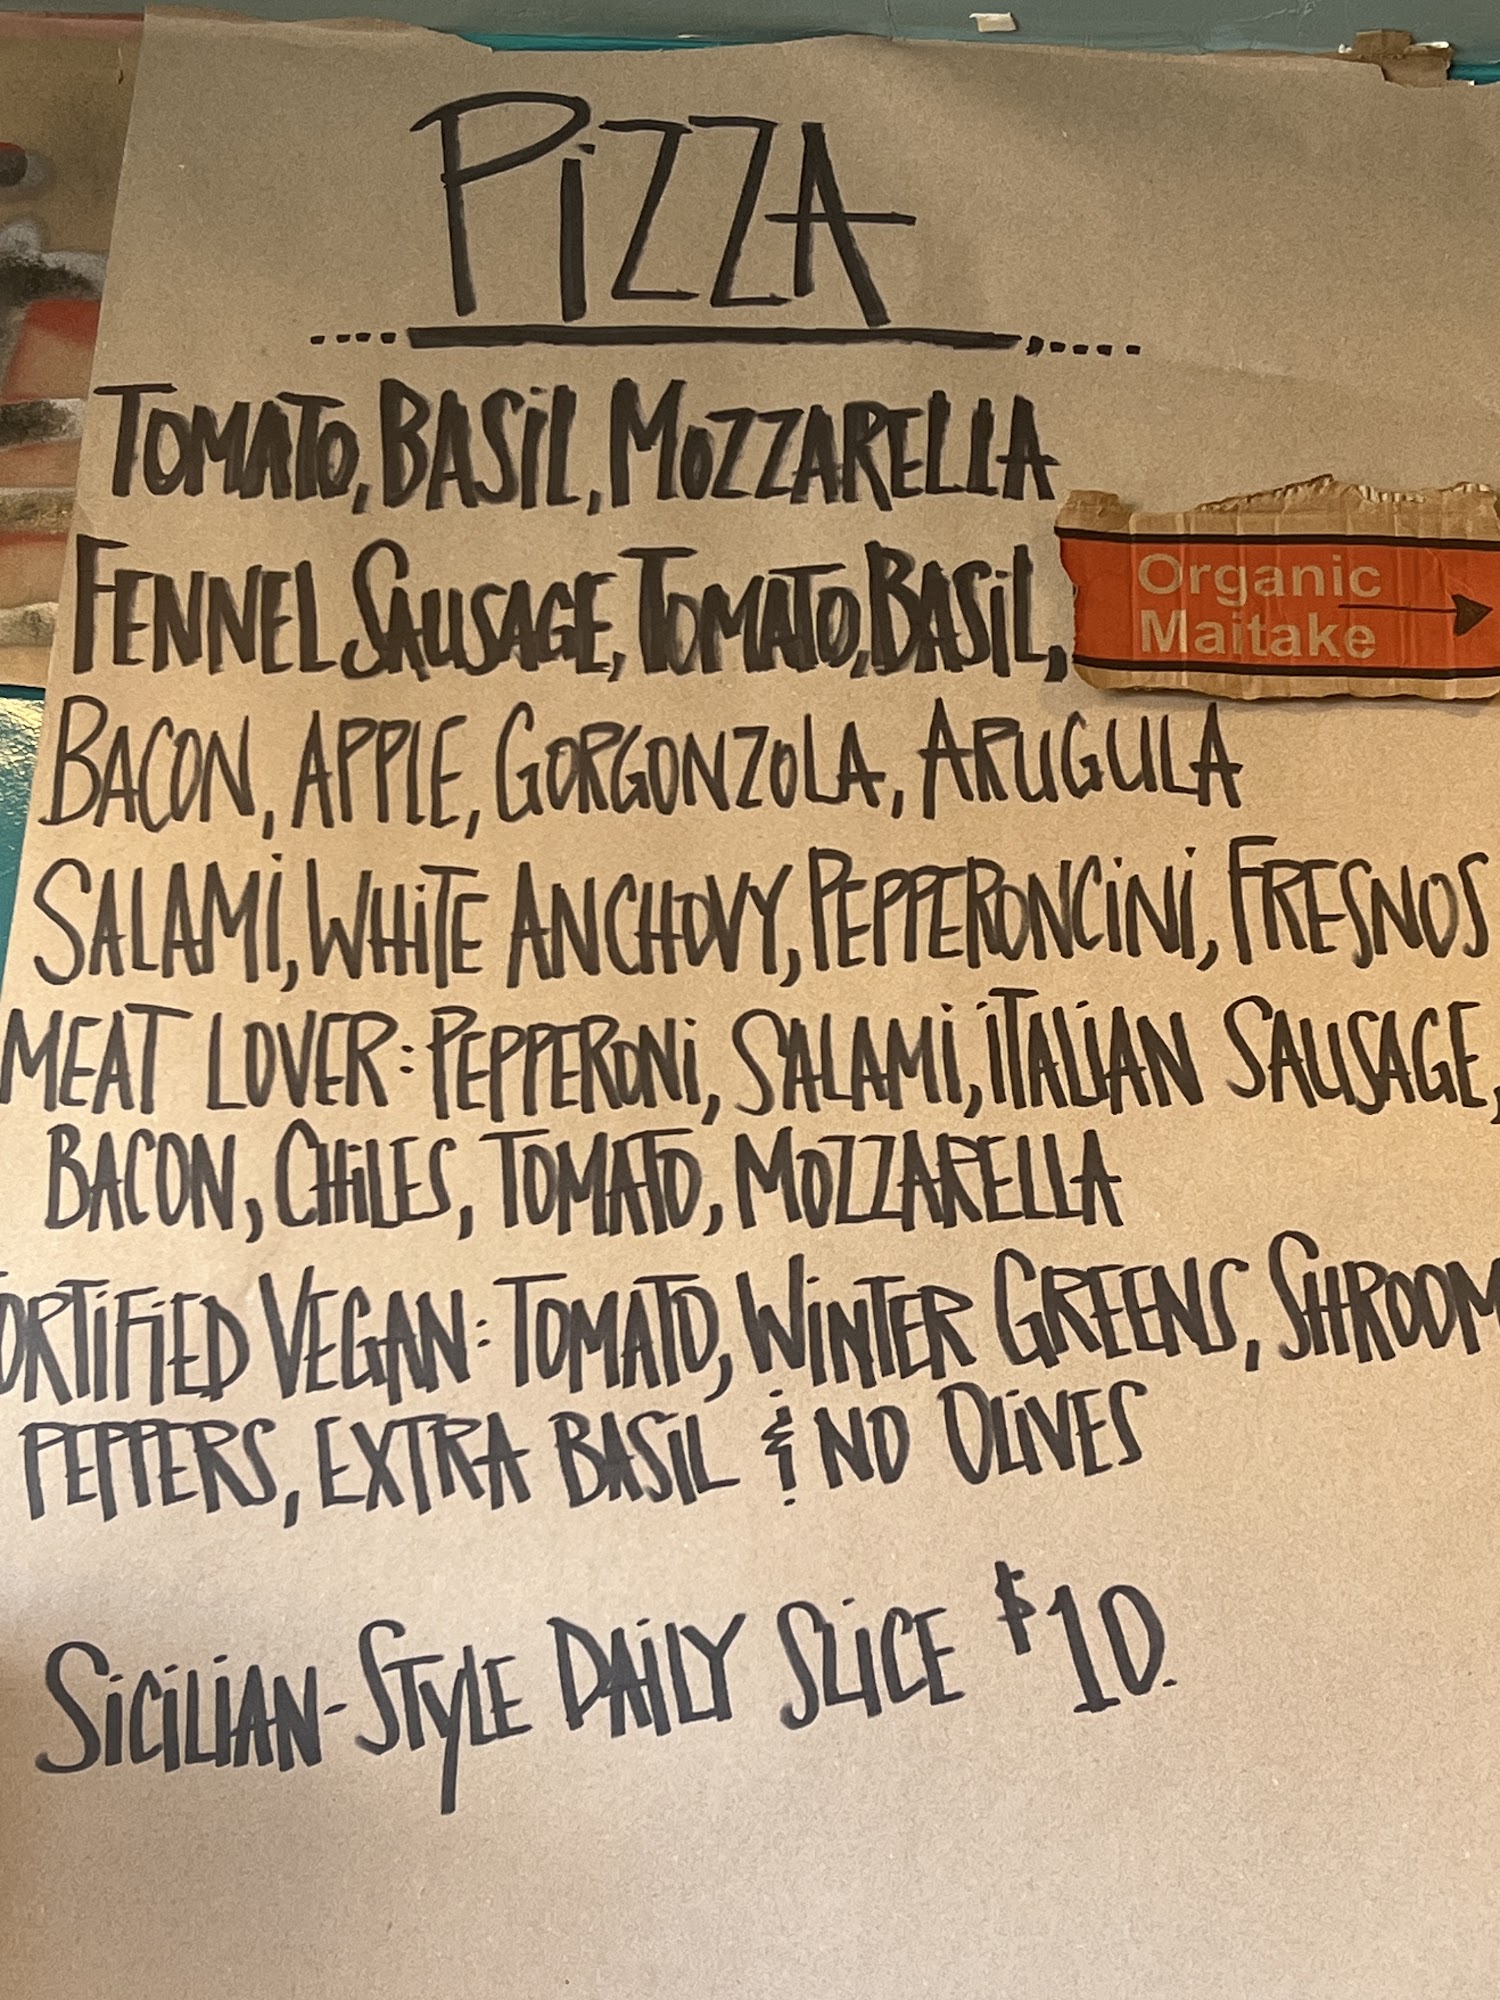 PiZZA
TOMATO, BASiL, MOZZARELLA
FENNEL SAUSAGE, TOMATO, BASiL,
Organic
Maitake
BACON, APPLE, GORGONZOLA, ARUGULA
SALAMi, WHiTE ANCHOVY, PEPPERONCiNi, FRESNOS
MEAT LOVER: PEPPERONi, SALAMi, iTALiAN SAUSAGE,
BACON, CHiLES, TOMATO, MOZZARELLA
ORTiFiED VEGAN: TOMATO, WiNTER GREENS, SHROOM
PEPPERS, EXTRA BASiL & NO OLiVES
SiCiLiAN-STYLE DAiLY SLiCE $10.